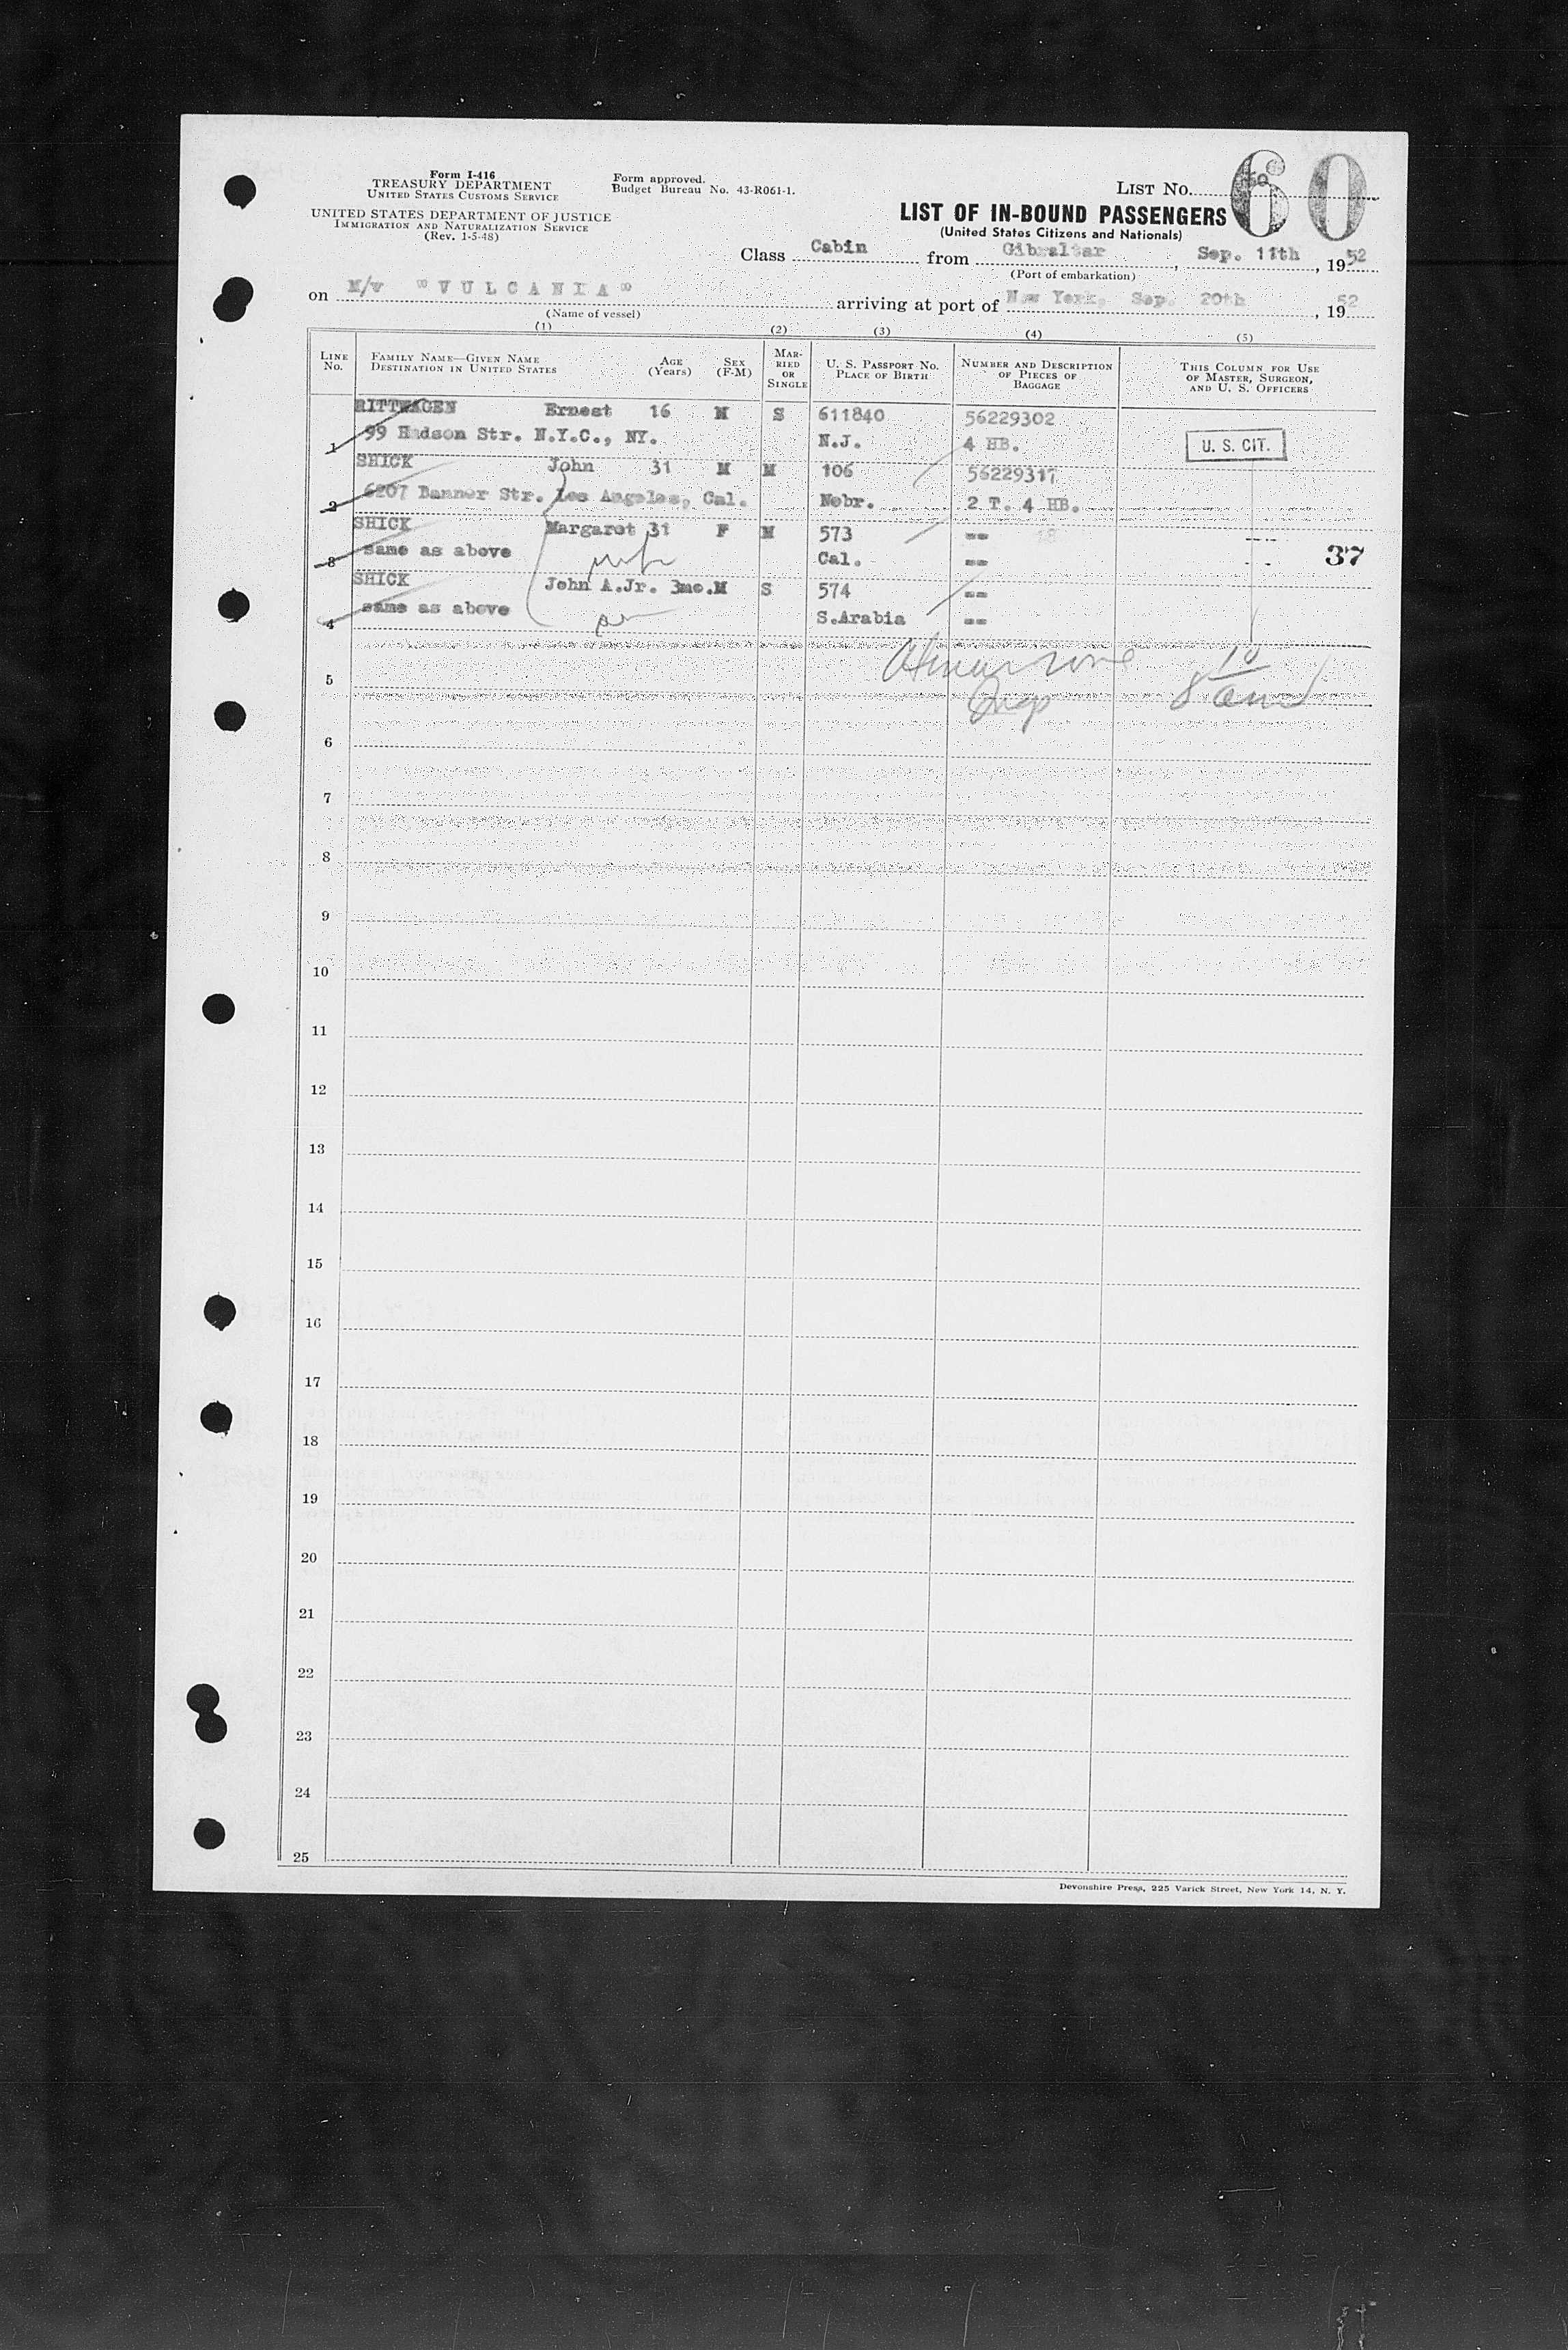 Form I-416
TREASURY DEPARTMENT
UNITED STATES CUSTOMS SERVICE
UNITED STATES DEPARTMENT OF JUSTICE
IMMIGRATION AND NATURALIZATION SERVICE
(Rev. 1-5-48)
Form approved.
Budget Bureau No. 43-R061-1.
LIST NO. 60
LIST OF IN-BOUND PASSENGERS
(United States Citizens and Nationals)
Class Cabin from Gibraltar, Sep. 11th, 1952
(Port of embarkation)
on M/v "VULCANIA" arriving at port of New York, Sep. 20th, 1952
(Name of vessel)
(1) (2) (3) (4) (5)
LINE NO. FAMILY NAME—GIVEN NAME DESTINATION IN UNITED STATES AGE (Years) SEX (F-M) MARRIED OR SINGLE U. S. PASSPORT NO. PLACE OF BIRTH NUMBER AND DESCRIPTION OF PIECES OF BAGGAGE THIS COLUMN FOR USE OF MASTER, SURGEON, AND U. S. OFFICERS
RITTWAGEN Ernest 16 M S 611840 56229302
1 99 Hudson Str. N.Y.C., NY. N.J. 4 HB. U. S. CIT.
SHICK John 31 M M 106 56229317
2 6207 Banner Str. Los Angeles, Cal. Nebr. 2 T. 4 HB.
SHICK Margaret 31 F M 573 --
3 same as above Cal. -- 37
SHICK John A.Jr. 3mo. M S 574 --
4 same as above S.Arabia --
5
6
7
8
9
10
11
12
13
14
15
16
17
18
19
20
21
22
23
24
25
Devonshire Press, 225 Varick Street, New York 14, N. Y.